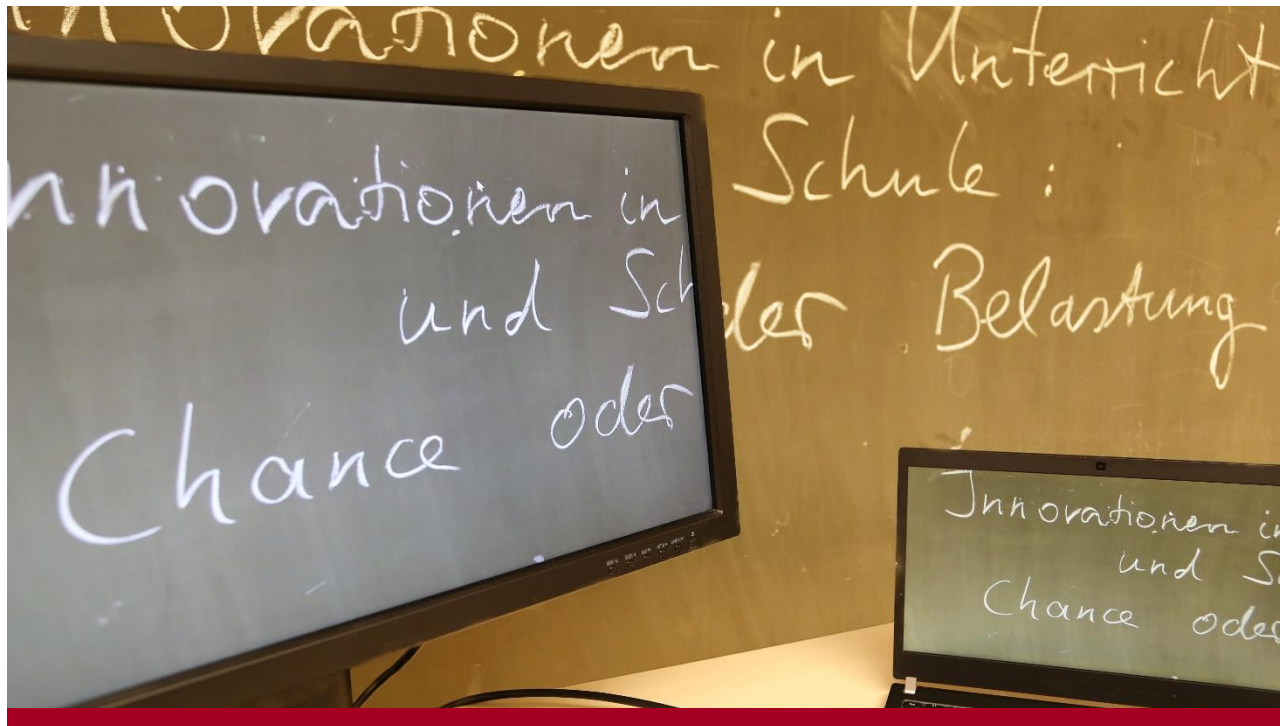 nnovationen in Unterricht
Schule :
der Belastung
nnovationen in
und Sch
Chance oder
Innovationen in
und S
Chance oder